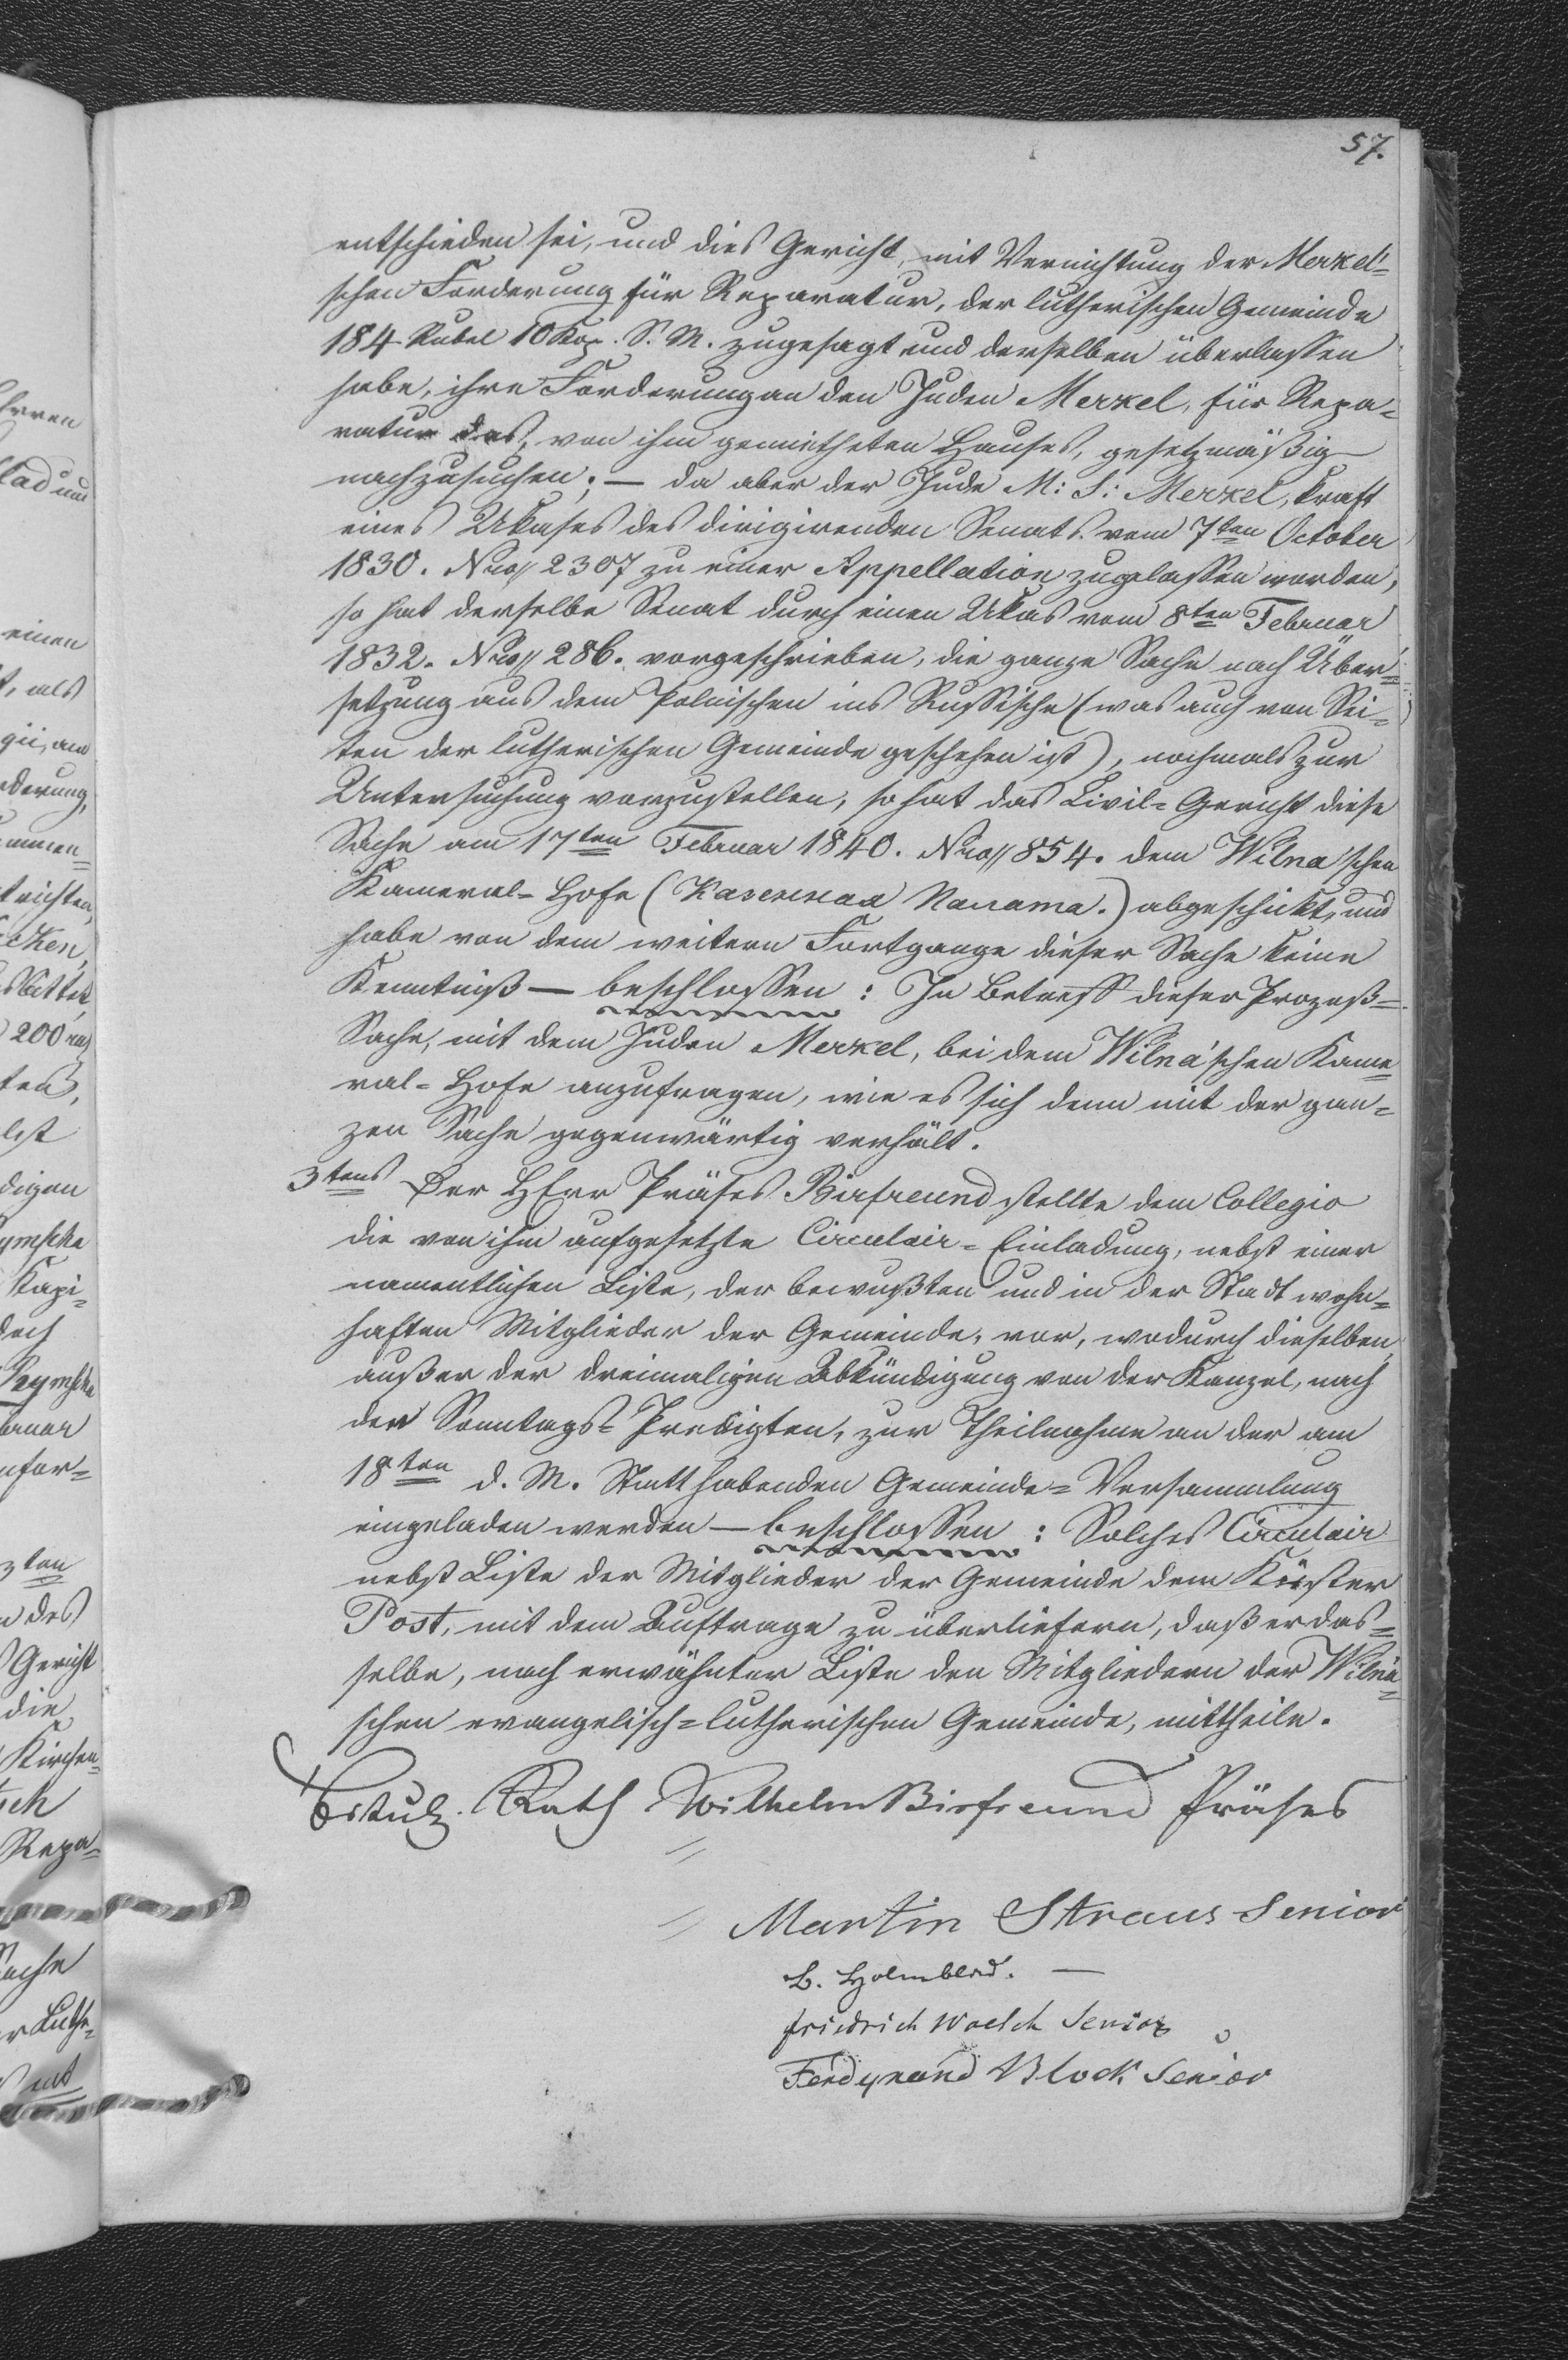 57.
entschieden sei, und dies Gericht, mit Vernichtung der Merkel'-
schen Forderung für Reparatur, der lutherischen Gemeinde
184 Rubel 10 Kop. S. M. zugesagt und derselben überlassen
habe, ihre Forderung an den Juden Merkel, für Repa-
ratur des, von ihm gemietheten Hauses, gesetzmäßig
nachzusuchen; — da aber der Jude M: S: Merkel, kraft
eines Ukases des dirigirenden Senats vom 7ten October
1830. Nro// 2307 zu einer Appellation zugelassen worden,
so hat derselbe Senat durch einen Ukas vom 8ten Februar
1832. Nro// 286. vorgeschrieben, die ganze Sache nach Über-
setzung aus dem Polnischen ins Russische (was auch von Sei-
ten der lutherischen Gemeinde geschehen ist), nochmals zur
Untersuchung vorzustellen, so hat das Civil-Gericht diese
Sache am 17ten Februar 1840. Nro// 854. dem Wilna'schen
Kameral-Hofe (Казенная Палата.) abgeschickt, und
habe von dem weitern Fortgange dieser Sache keine
Kenntniß — beschlossen: In Betreff dieser Prozeß-
Sache, mit dem Juden Merkel, bei dem Wilna'schen Kame-
ral-Hofe anzufragen, wie es sich denn mit der gan-
zen Sache gegenwärtig verhält.
3tens Der HErr Präses Birfreund stellte dem Collegio
die von ihm aufgesetzte Circulair-Einladung, nebst einer
namentlichen Liste, der bewußten und in der Stadt wohn-
haften Mitglieder der Gemeinde, vor, wodurch dieselben,
außer der dreimaligen Abkündigung von der Kanzel, nach
den Sonntags-Predigten, zur Theilnahme an der am
18ten d. M. Statt habenden Gemeinde-Versammlung
eingeladen werden — beschlossen: Solches Circulair
nebst Liste der Mitglieder der Gemeinde dem Küster
Post, mit dem Auftrage zu überliefern, daß er das-
selbe, nach erwähnter Liste den Mitgliedern der Wilna'-
schen evangelisch-lutherischen Gemeinde, mittheile.
Rath Wilhelm Birfreund Präses
Martin Straus Senior
Holmblad. —
friedrich Woelck Senior
Ferdynand Block Senior